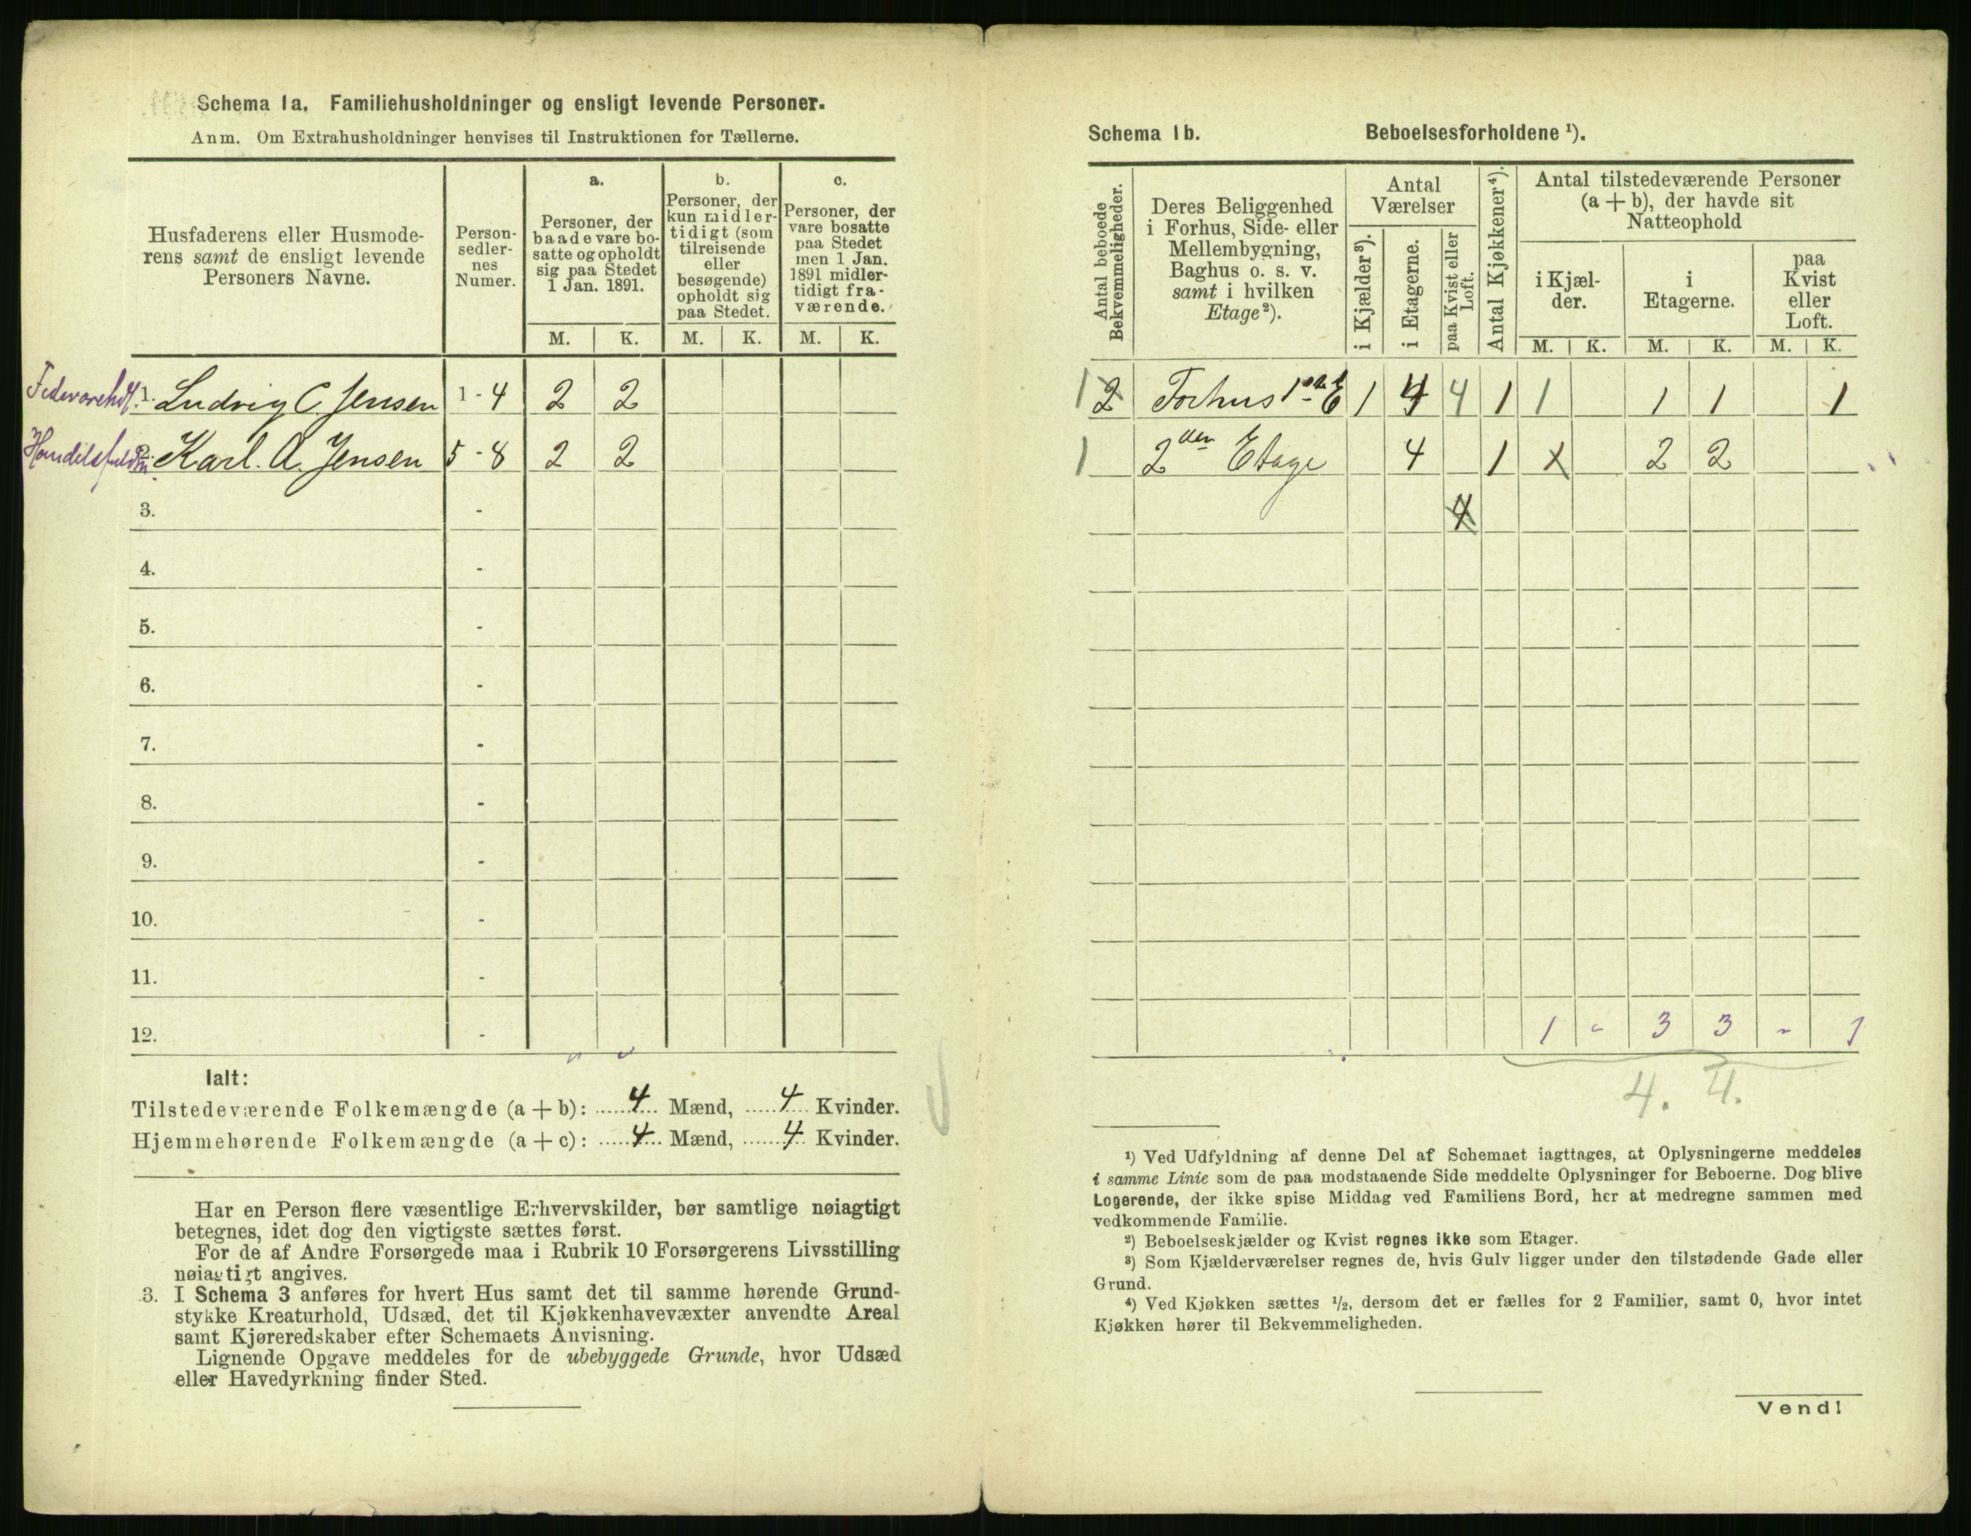 Schema 1a. Familiehusholdninger og ensligt levende Personer.
Anm. Om Extrahusholdninger henvises til Instruktionen for Tællerne.
Husfaderens eller Husmode-
rens samt de ensligt levende
Personers Navne.
Person-
sedler-
nes
Numer.
a.
Personer, der
baade vare bo-
satte og opholdt
sig paa Stedet
1 Jan. 1891.
b.
Personer, der
kun midler-
tidigt (som
tilreisende
eller
besøgende)
opholdt sig
paa Stedet.
c.
Personer, der
vare bosatte
paa Stedet
men 1 Jan.
1891 midler-
tidigt fra-
værende.
M. K. M. K. M. K.
1. Ludvig C. Jensen 1 - 4 2 2
2. Karl. A. Jensen 5 - 8 2 2
3. -
4. -
5. -
6. -
7. -
8. -
9. -
10. -
11. -
12. -
Ialt:
Tilstedeværende Folkemængde (a + b): 4 Mænd, 4 Kvinder.
Hjemmehørende Folkemængde (a + c): 4 Mænd, 4 Kvinder.
Har en Person flere væsentlige Erhvervskilder, bør samtlige nøiagtigt
betegnes, idet dog den vigtigste sættes først.
For de af Andre Forsørgede maa i Rubrik 10 Forsørgerens Livsstilling
nøiagtigt angives.
3. I Schema 3 anføres for hvert Hus samt det til samme hørende Grund-
stykke Kreaturhold, Udsæd, det til Kjøkkenhavevæxter anvendte Areal
samt Kjøreredskaber efter Schemaets Anvisning.
Lignende Opgave meddeles for de ubebyggede Grunde, hvor Udsæd
eller Havedyrkning finder Sted.
Schema 1b. Beboelsesforholdene ¹).
Antal beboede
Bekvemmeligheder.
Deres Beliggenhed
i Forhus, Side- eller
Mellembygning,
Baghus o. s. v.
samt i hvilken
Etage²).
Antal
Værelser
i Kjælder³).
i Etagerne.
paa Kvist eller
Loft.
Antal Kjøkkener⁴).
Antal tilstedeværende Personer
(a + b), der havde sit
Natteophold
i Kjæl-
der.
i
Etagerne.
paa
Kvist
eller
Loft.
M. K. M. K. M. K.
1 2 Forhus 1ste E 1 4 4 1 1 1 1 1
1 2den Etage 4 1 2 2
4
1 - 3 3 - 1
4. 4.
¹) Ved Udfyldning af denne Del af Schemaet iagttages, at Oplysningerne meddeles
i samme Linie som de paa modstaaende Side meddelte Oplysninger for Beboerne. Dog blive
Logerende, der ikke spise Middag ved Familiens Bord, her at medregne sammen med
vedkommende Familie.
²) Beboelseskjælder og Kvist regnes ikke som Etager.
³) Som Kjælderværelser regnes de, hvis Gulv ligger under den tilstødende Gade eller
Grund.
⁴) Ved Kjøkken sættes ½, dersom det er fælles for 2 Familier, samt 0, hvor intet
Kjøkken hører til Bekvemmeligheden.
Vend!